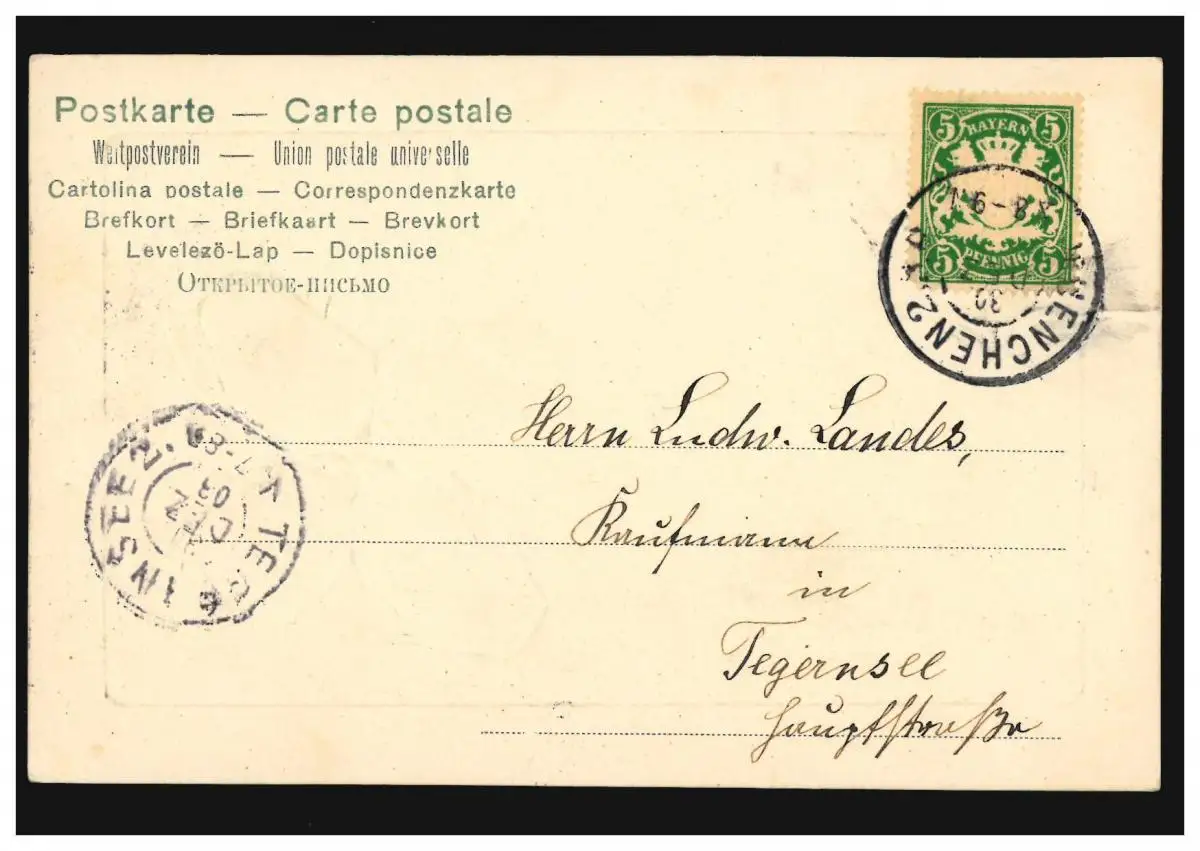 Postkarte — Carte postale
Weltpostverein — Union postale universelle
Cartolina postale — Correspondenzkarte
Brefkort — Briefkaart — Brevkort
Levelező-Lap — Dopisnice
Открытое-письмо
5 BAYERN 5
5 PFENNIG 5
MUENCHEN 2
30
TEGERNSEE 2.
DEZ
03
Herrn Ludw. Landes,
Kaufmann
in
Tegernsee
Hauptstraße